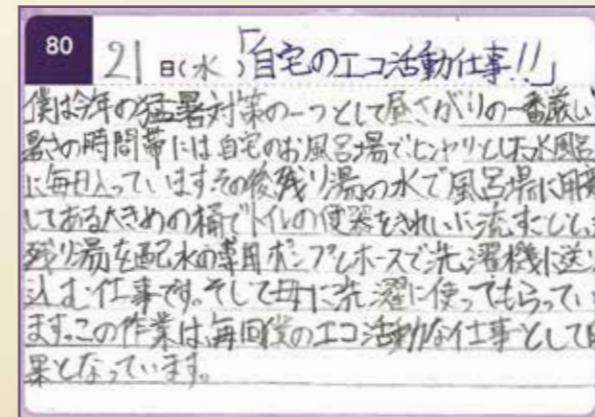 80 21日(水)「自宅のエコ活動仕事!!」
僕は今年の猛暑対策の一つとして昼さがりの一番厳しい
暑さの時間帯には自宅のお風呂場でヒンヤリとした水風呂
に毎日入っています。その後残り湯の水で風呂場に用意
してある大きめの桶でトイレの便器をきれいに流すことと、
残り湯を配水の専用ポンプとホースで洗濯機に送り
込む仕事です。そして母に洗濯に使ってもらってい
ます。この作業は毎回僕のエコ活動な仕事として日
課となっています。